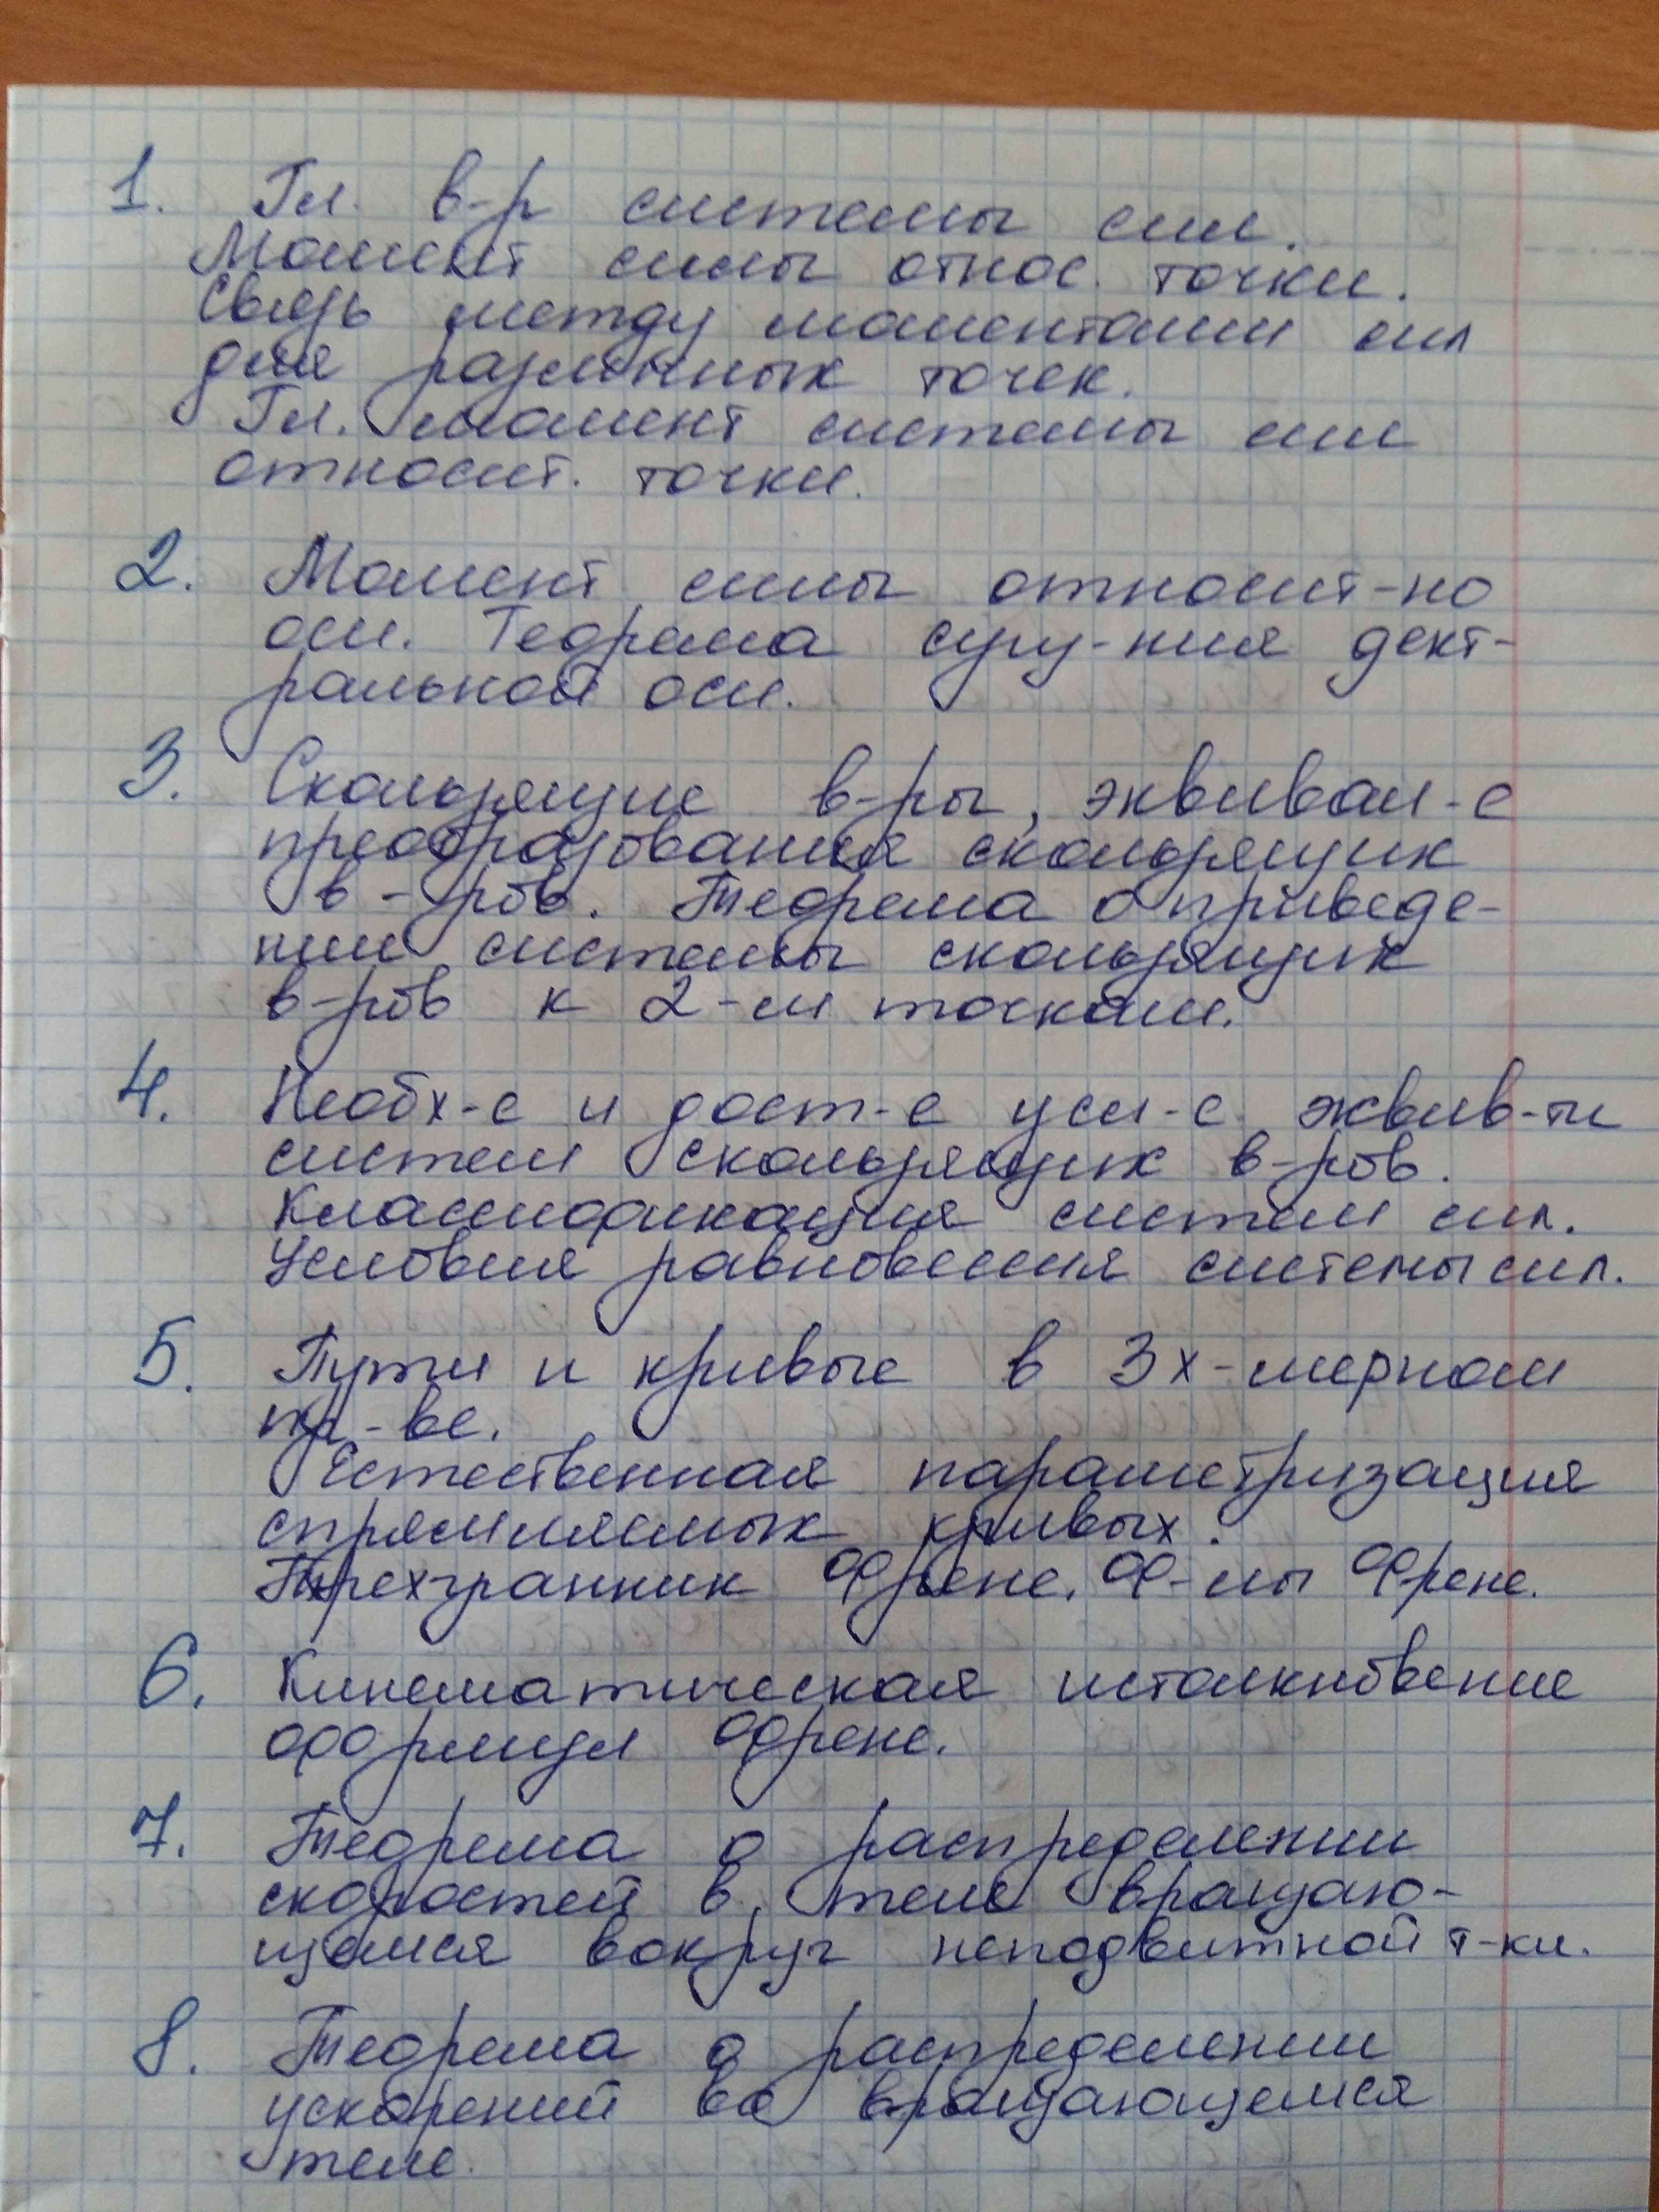 1. Гл. в-р системы сил.
Момент силы относ. точки.
Связь между моментами сил
для различных точек.
Гл. момент системы сил
относит. точки.
2. Момент силы относит-но
оси. Теорема сущ-ния цент-
ральной оси.
3. Скользящие в-ры, эквивал-е
преобразования скользящих
в-ров. Теорема о приведе-
нии системы скользящих
в-ров к 2-м точкам.
4. Необх-е и дост-е усл-е эквив-ти
систем скользящих в-ров.
Классификация систем сил.
Условия равновесия системы сил.
5. Пути и кривые в 3х-мерном
пр-ве.
Естественная параметризация
спрямляемых кривых.
Трехгранник Френе. Ф-лы Френе.
6. Кинематическая истолкновение
формул Френе.
7. Теорема о распределении
скоростей в теле вращаю-
щемся вокруг неподвижной т-ки.
8. Теорема о распределении
ускорений во вращающемся
теле.